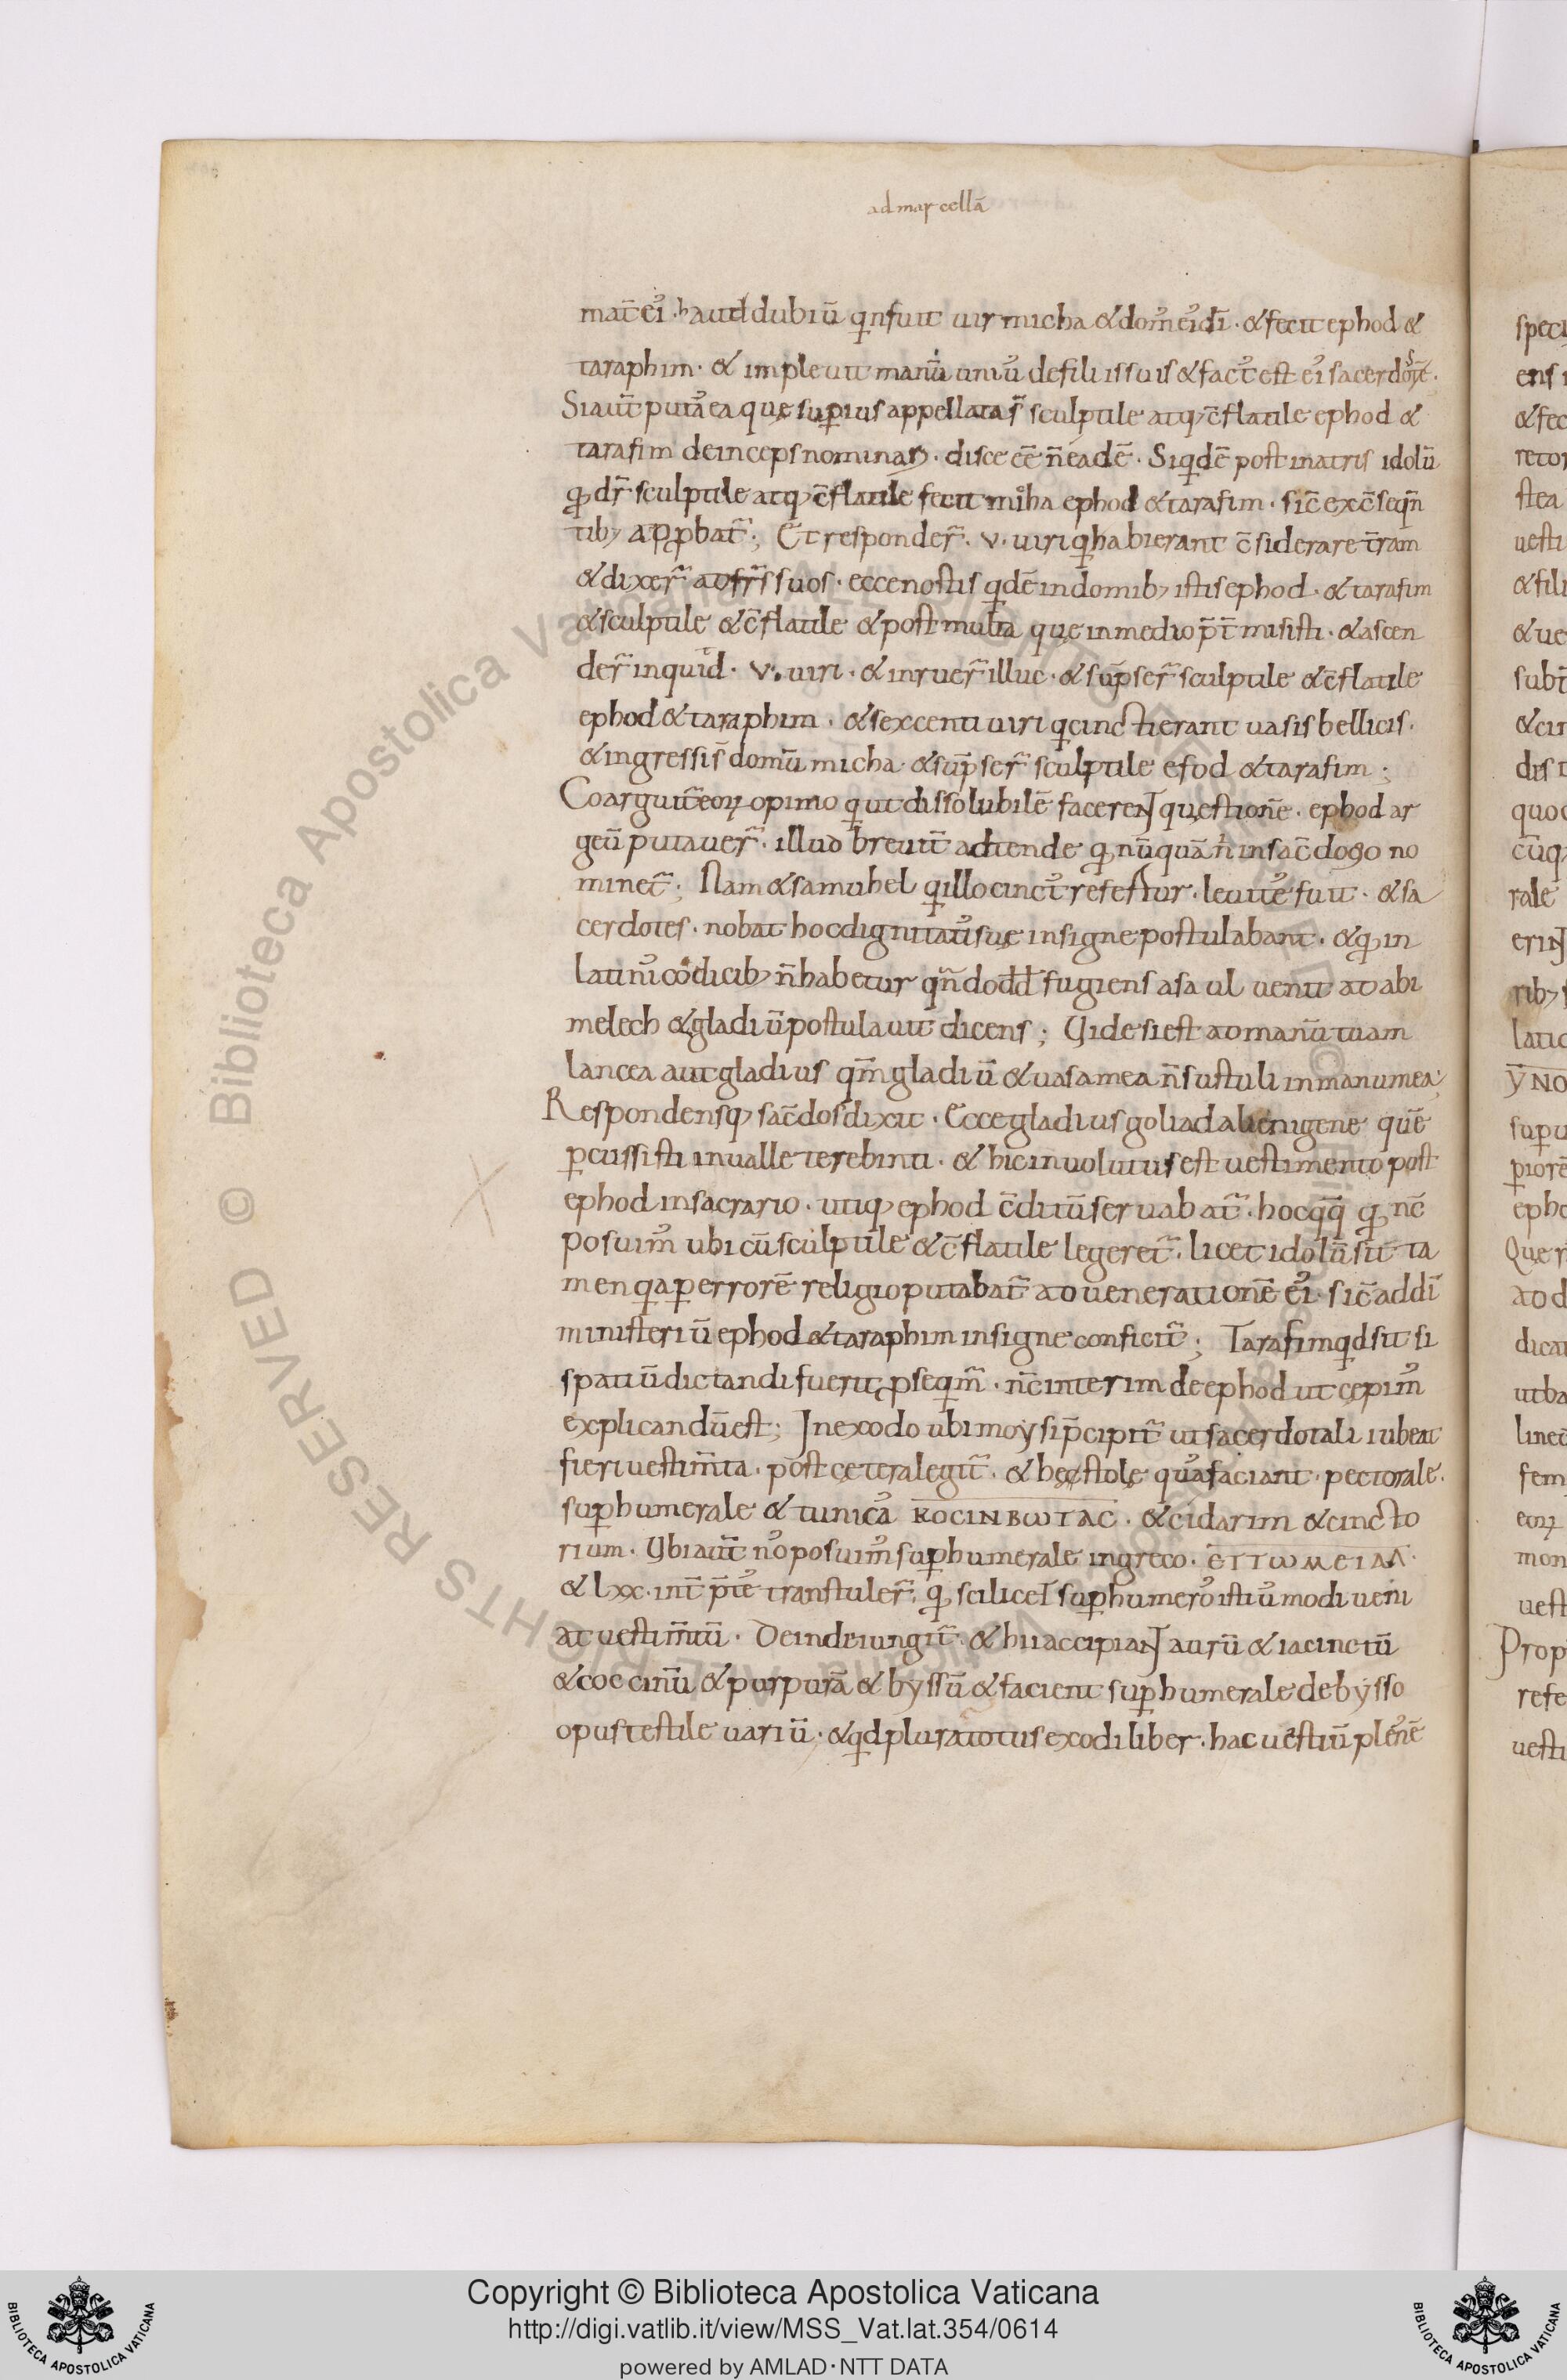 ad marcellā
mat̄ ei᾽. haud dubiū qͥn fuit uir micha & dom᾽ ei᾽ dī. & fecit ephod &
taraphim. & impleuit manū uni᾽ de filiis suis & fact᾽ est ei᾽ sacerdos.
Si aut̄ putā ea quę suꝑius appellata s̄ sculptile atq; c̄flatile ephod &
tarafim deinceps nominari. disce eē n̄ eadē. Siqͥdē post matris idolū
qđ dr̄ sculptile atq; c̄flatile fecit miha ephod & tarafim. sic̄ ex c̄seqn̄
tib; aꝓbat᾽; Et responder̄. v. uiri qͥ habierant c̄siderare t̄ram
& dixer̄ ad fr̄s suos. ecce nostis qͥdē in domib; istis ephod. & tarafim
& sculptile & c̄flatile & post multa quę in medio p̄t̄misisti. & ascen
der̄ inquid. v. uiri. & inruer̄ illuc. & sūpser̄ sculptile & c̄flatile
ephod & taraphim. & sexcenti uiri qͥ cincti erant uasis bellicis.
& ingressi s̄ domū micha. & sūpser̄ sculptile efod & tarafim;
Coarguit᾽ eoꝝ opinio qͥ ut dissolubilē facerent quęstionē. ephod ar
geū putauer̄. illud breuit̄ adtende qđ nūquā n̄ in sac̄dogo no
minet᾽; Nam & samuhel qͥ illo cinct᾽ refertur. leuite᾽ fuit. & sa
cerdotes. nobat hoc dignitati᾽ suę insigne postulabant. & qđ in
latini᾽ codicib; n̄ habetur qn̄do dđ fugiens a saul uenit ad abi
melech & gladiū postulauit dicens; Vide si est ad manū tuam
lancea aut gladius qm̄ gladiū & uasa mea n̄ sustuli in manu mea;
Respondensq; sac̄dos dixit. Ecce gladius goliad alienigene quē
ꝑcussisti in ualle terebinti. & hic inuolutus est uestimento post
ephod in sacrario. utiq; ephod c̄ditū seruabat᾽. hoc qq̄ qđ nc̄
posuim᾽ ubi cū sculptile & c̄flatile legeret᾽. licet idolū sit ta
men qͥa ꝑ errorē religio putabat᾽ ad uenerationē ei᾽. sic̄ addi
ministeriū ephod & taraphim insigne conficit᾽; Tarafim qͥd sit si
spatiū dictandi fuerit, ꝓseqm᾽. nc̄ interim de ephod ut cępim᾽
explicandū est; In exodo ubi moysi p̄cipit᾽ ut sacerdotali iubeat
fieri uestim̄ta. post cętera legit᾽. & hę stolę quas faciant. pectorale.
suꝑhumerale & tunica᾽ ΚΟϹΙΝΒѠΤΑϹ. & cidarim & cincto
rium. Vbi aut̄ no᾽ posuim᾽ suꝑhumerale in greco. ЄΠѠΜЄΙΔΑ.
& lxx. int̄p̄te᾽ transtuler̄. qđ scilicet suꝑ humero᾽ isti᾽modi ueni
at uestim̄tū. Deinde iungit᾽. & hii accipiant aurū & iacinctū
& coccinū & purpurā & byssū & facient suꝑhumerale de bysso
opus textile uariū. & qͥd plura totus exodi liber. hac uestiū plenē